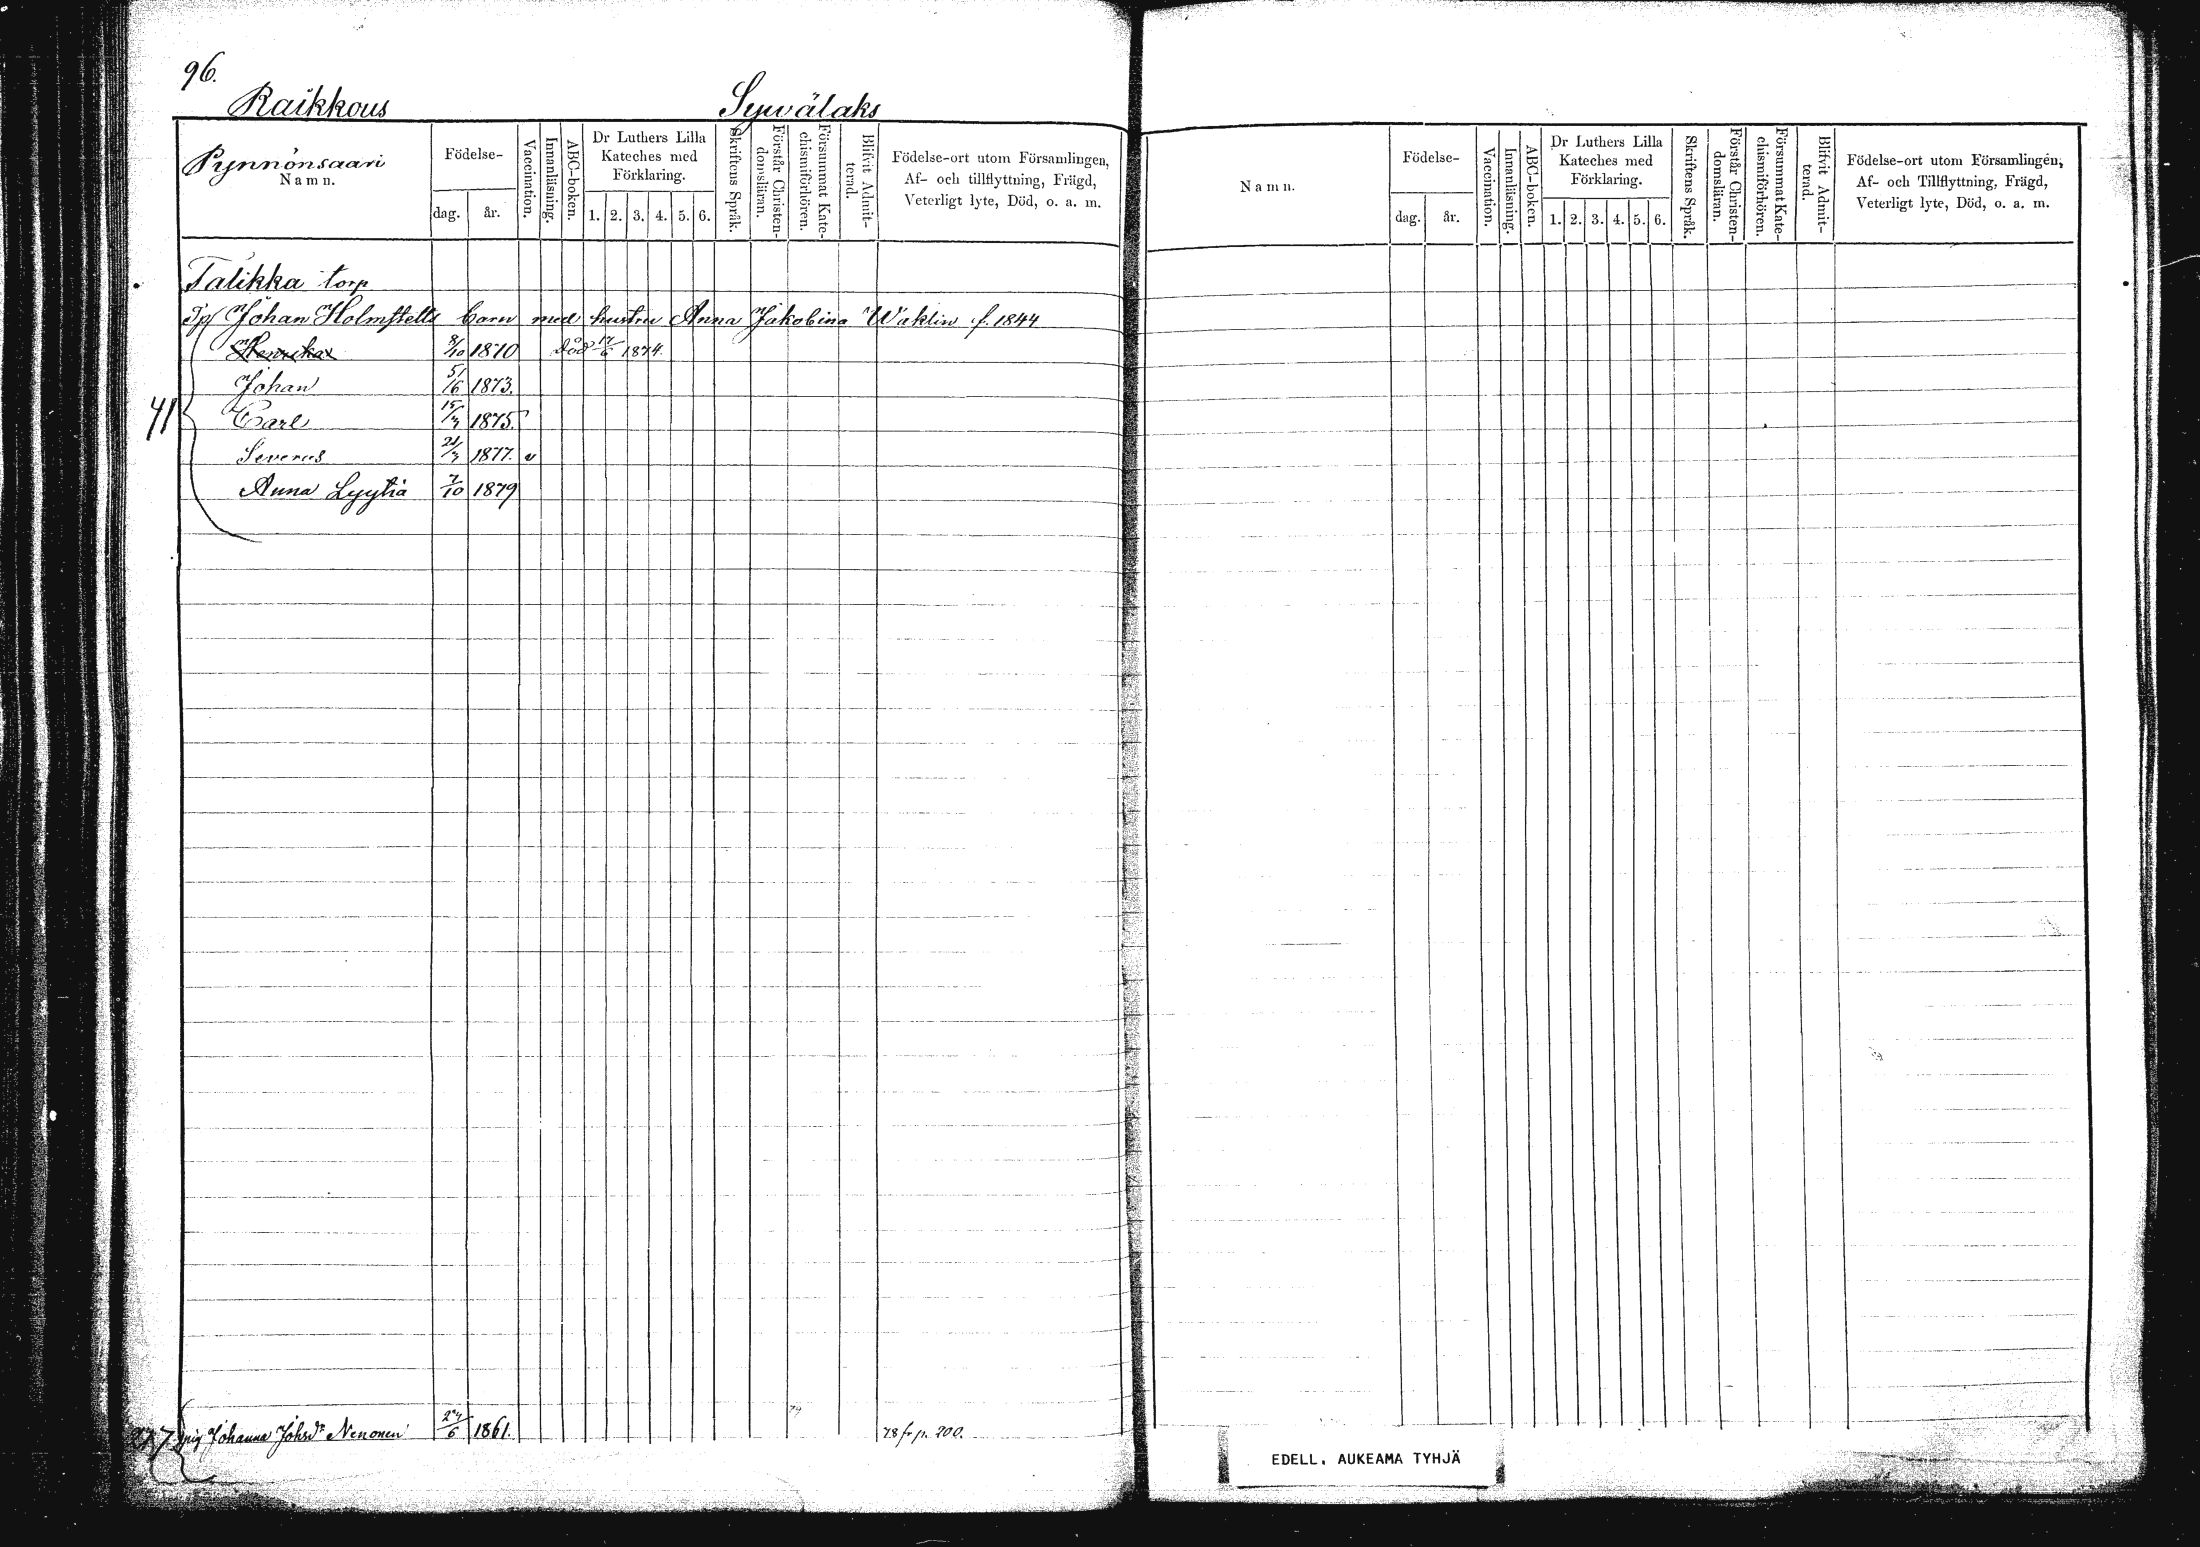 96.
Raikkous Sywälaks
Pynnönsaari
Namn.
Födelse-
dag. år.
Vaccination.
Innanläsning.
ABC-boken.
Dr Luthers Lilla
Kateches med
Förklaring.
1. 2. 3. 4. 5. 6.
Skriftens Språk.
Förstår Christen-
domsläran.
Försummat Kate-
chismiförhören.
Blifvit Admit-
terad.
Födelse-ort utom Församlingen,
Af- och tillflyttning, Frägd,
Veterligt lyte, Död, o. a. m.
Talikka torp
Tp/ Johan Holmstetts barn med hustru Anna Jakobina Waklin f. 1844
Henrika 8/10 1870 död 17/6 1874.
Johan 5/6 1873.
41 Carl 15/7 1875.
Severus 21/3 1877. v
Anna Lyytia 7/10 1879
pig Johanna Johsdr Nenonen 27/6 1861. 78 fr p. 200.
Namn.
Födelse-
dag. år.
Vaccination.
Innanläsning.
ABC-boken.
Dr Luthers Lilla
Kateches med
Förklaring.
1. 2. 3. 4. 5. 6.
Skriftens Språk.
Förstår Christen-
domsläran.
Försummat Kate-
chismiförhören.
Blifvit Admit-
terad.
Födelse-ort utom Församlingen,
Af- och Tillflyttning, Frägd,
Veterligt lyte, Död, o. a. m.
EDELL. AUKEAMA TYHJÄ